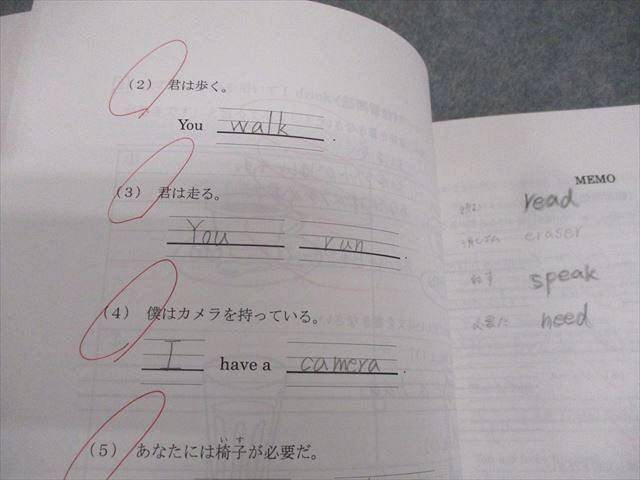 (2) 君は歩く。
You walk .
(3) 君は走る。
You run .
(4) 僕はカメラを持っている。
I have a camera .
(5) あなたには椅子が必要だ。
いす
MEMO
read
消しゴム eraser
話す speak
必要だ need